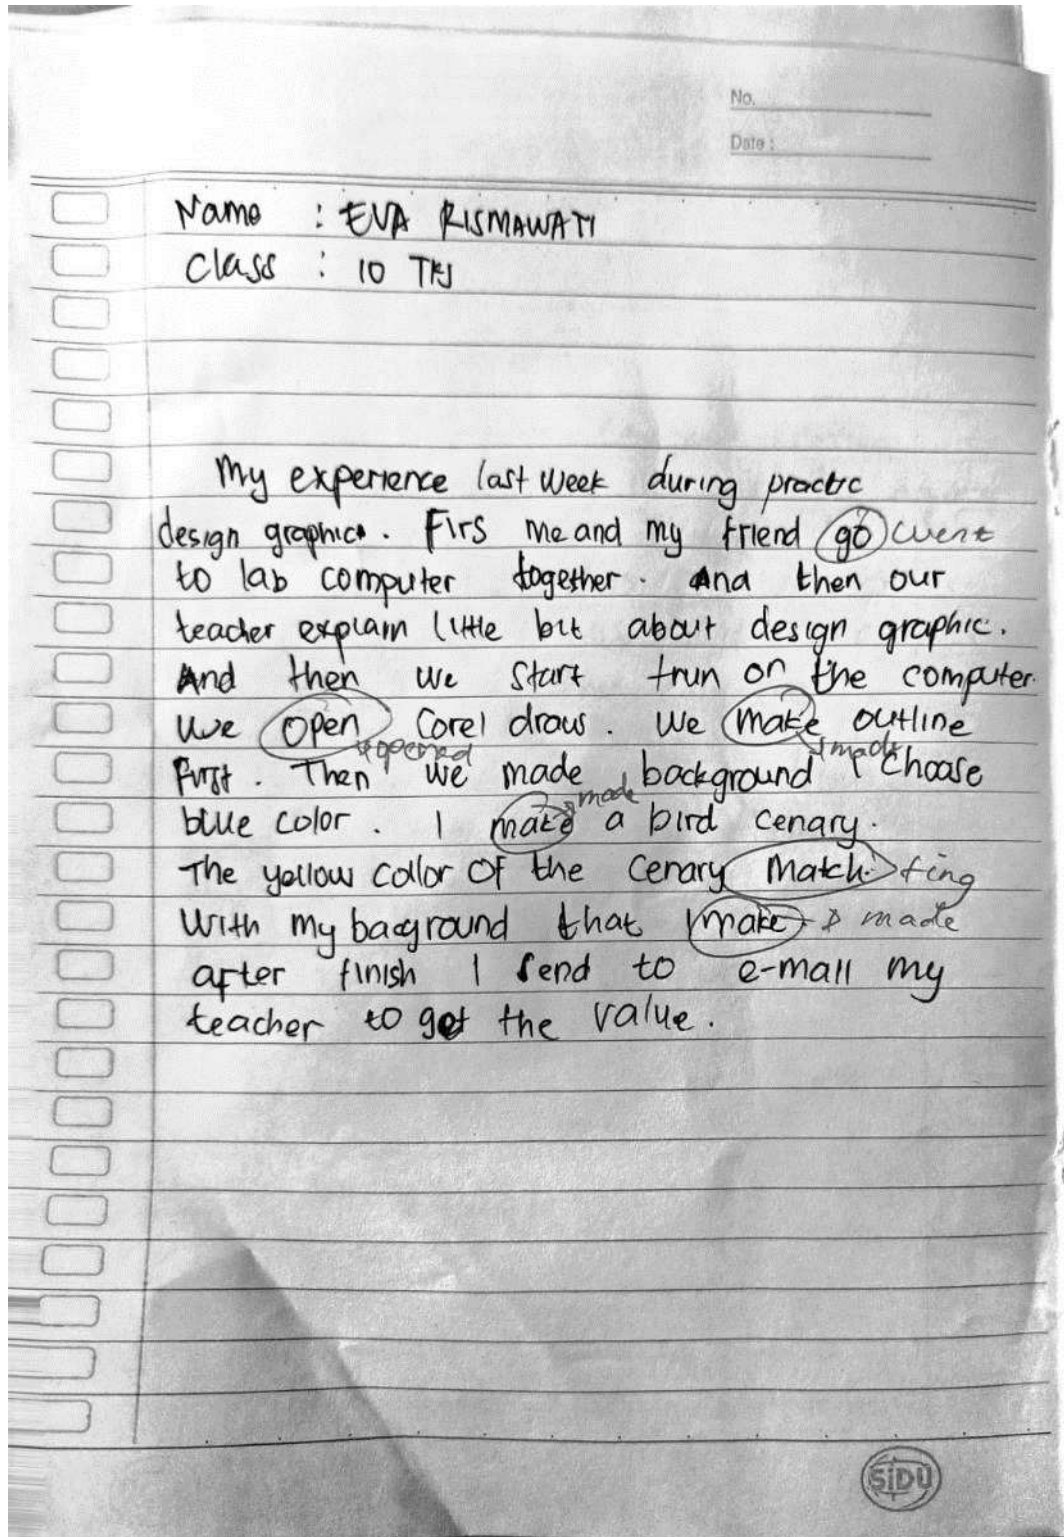 No.
Date :
Name : EVA RISMAWATI
Class : 10 TKJ
My experience last week during practic
design graphic. Firs me and my friend go went
to lab computer together. And then our
teacher explain little bit about design graphic.
And then we start trun on the computer.
We open Corel draw. We make outline
opened made
first. Then we made background I Choase
made
blue color. I make a bird cenary.
The yellow collor Of the cenary match. ting
With my baground that I make made
after finish I send to e-mail my
teacher to get the value.
SiDU